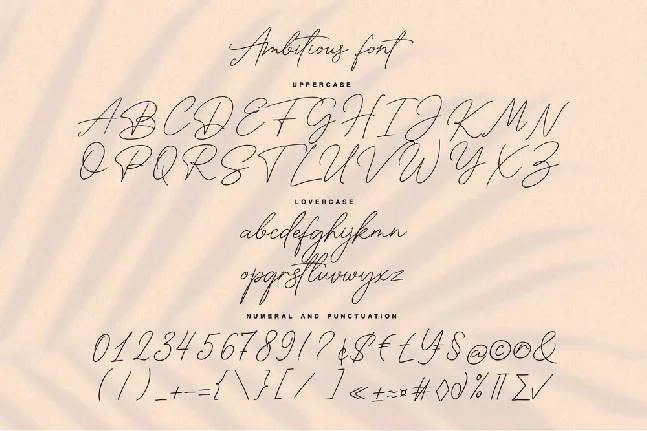 Ambitious font
UPPERCASE
ABCDEFGHIJKMN
OPQRSTLUVWYXZ
LOVERCASE
abcdefghijkmn
opqrstluvwyxz
NUMERAL AND PUNCTUATION
0123456789!? ¢$€£¥S@©®&
(/)_+-={\}[/]«±≈¤#◊∂%∏∑√